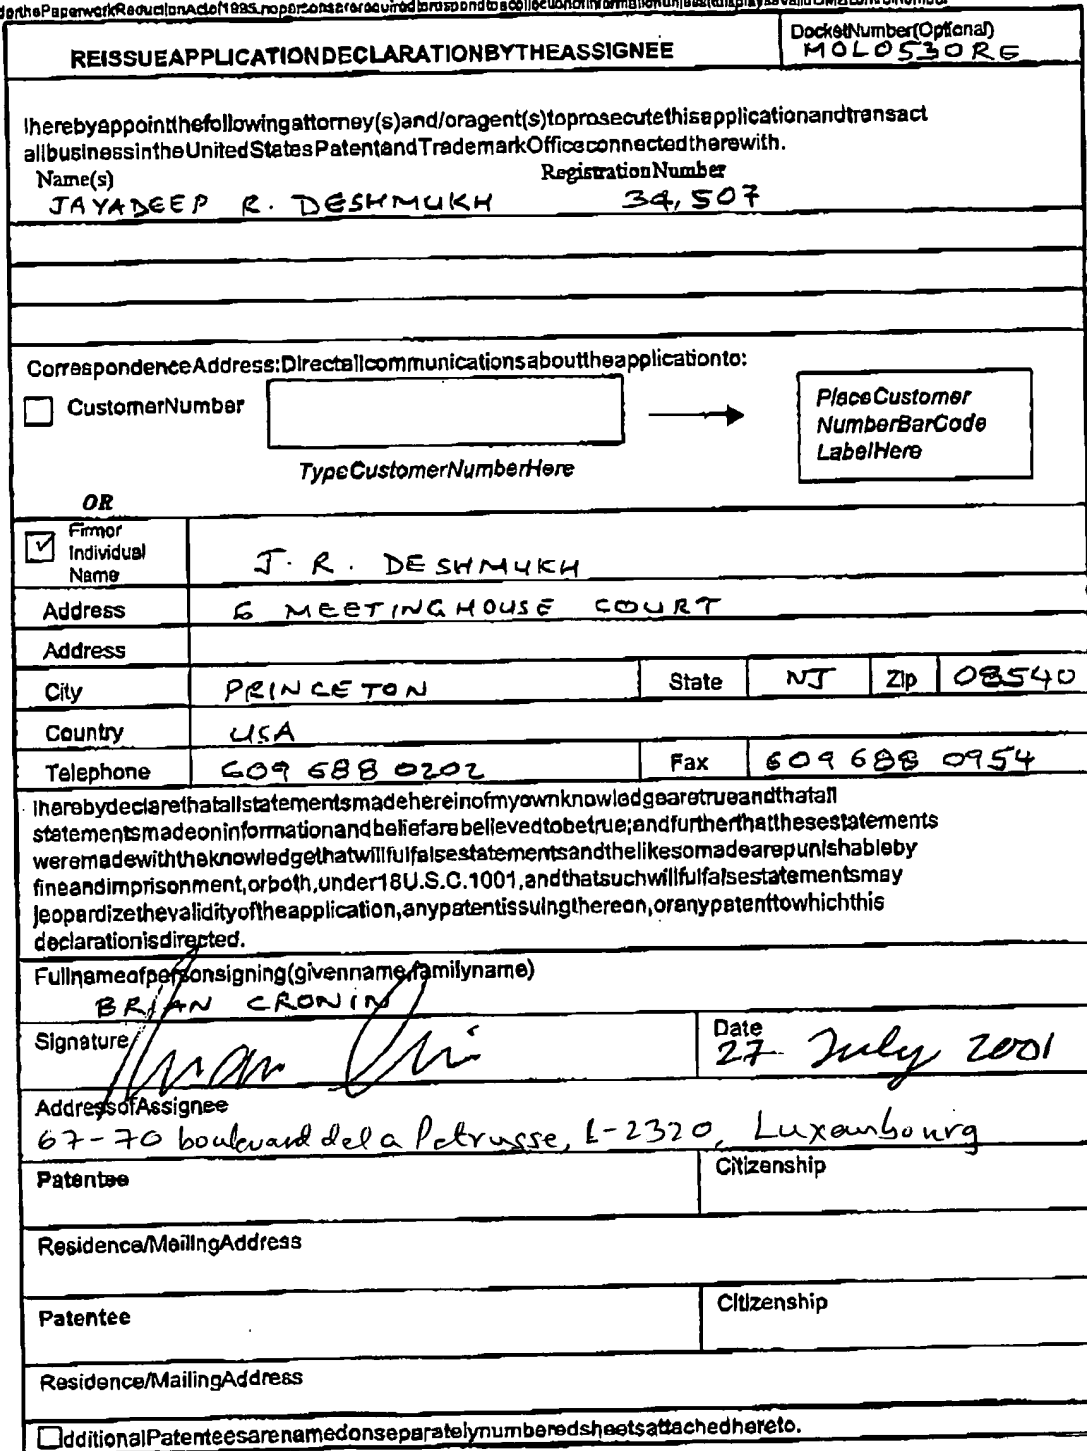 derthePaperworkReductionActof1995,nopersonsarerequiredtorespondtoacollectionofinformationunlessitdisplaysavalidOMBcontrolnumber
REISSUEAPPLICATIONDECLARATIONBYTHEASSIGNEE
DocketNumber(Optional)
MOLO530RE
Iherebyappointthefollowingattorney(s)and/oragent(s)toprosecutethisapplicationandtransact
allbusinessintheUnitedStatesPatentandTrademarkOfficeconnectedtherewith.
Name(s) RegistrationNumber
JAYADEEP R. DESHMUKH 34,507
CorrespondenceAddress:Directallcommunicationsabouttheapplicationto:
CustomerNumber
PlaceCustomer
NumberBarCode
LabelHere
TypeCustomerNumberHere
OR
Firmor
Individual
Name
J. R. DESHMUKH
Address 6 MEETING HOUSE COURT
Address
City PRINCETON State NJ Zip 08540
Country USA
Telephone 609 688 0202 Fax 609 688 0954
Iherebydeclarethatallstatementsmadehereinofmyownknowledgearetrueandthatall
statementsmadeoninformationandbeliefarebelievedtobetrue;andfurtherthatthesestatements
weremadewiththeknowledgethatwillfulfalsestatementsandthelikesomadearepunishableby
fineandimprisonment,orboth,under18U.S.C.1001,andthatsuchwillfulfalsestatementsmay
jeopardizethevalidityoftheapplication,anypatentissuingthereon,oranypatenttowhichthis
declarationisdirected.
Fullnameofpersonsigning(givenname,familyname)
BRIAN CRONIN
Signature
Date
27 July 2001
AddressofAssignee
67-70 boulevard de la Petrusse, L-2320, Luxembourg
Patentee Citizenship
Residence/MailingAddress
Patentee Citizenship
Residence/MailingAddress
dditionalPatenteesarenamedonseparatelynumberedsheetsattachedhereto.